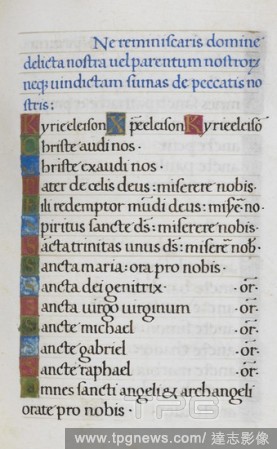 Ne reminiscaris domine
delicta nostra uel parentum nostror
neq uindictam sumas de peccatis no
stris:
Kyrieeleison Xpeeleison Kyrieeleiso
Christe audi nos·
Christe exaudi nos·
Pater de celis deus: miserere nobis·
Fili redemptor mudi deus: mise no·
Spiritus sancte ds: miserere nobis·
Sacta trinitas unus ds: misere nob·
Sancta maria: ora pro nobis·
Sancta dei genitrix ·or·
Sancta uirgo uirginum ·or·
Sancte michael ·or·
Sancte gabriel ·or·
Sancte raphael ·or·
Omnes sancti angeli & archangeli
orate pro nobis·
TPG
www.tpgnews.com / 達志影像